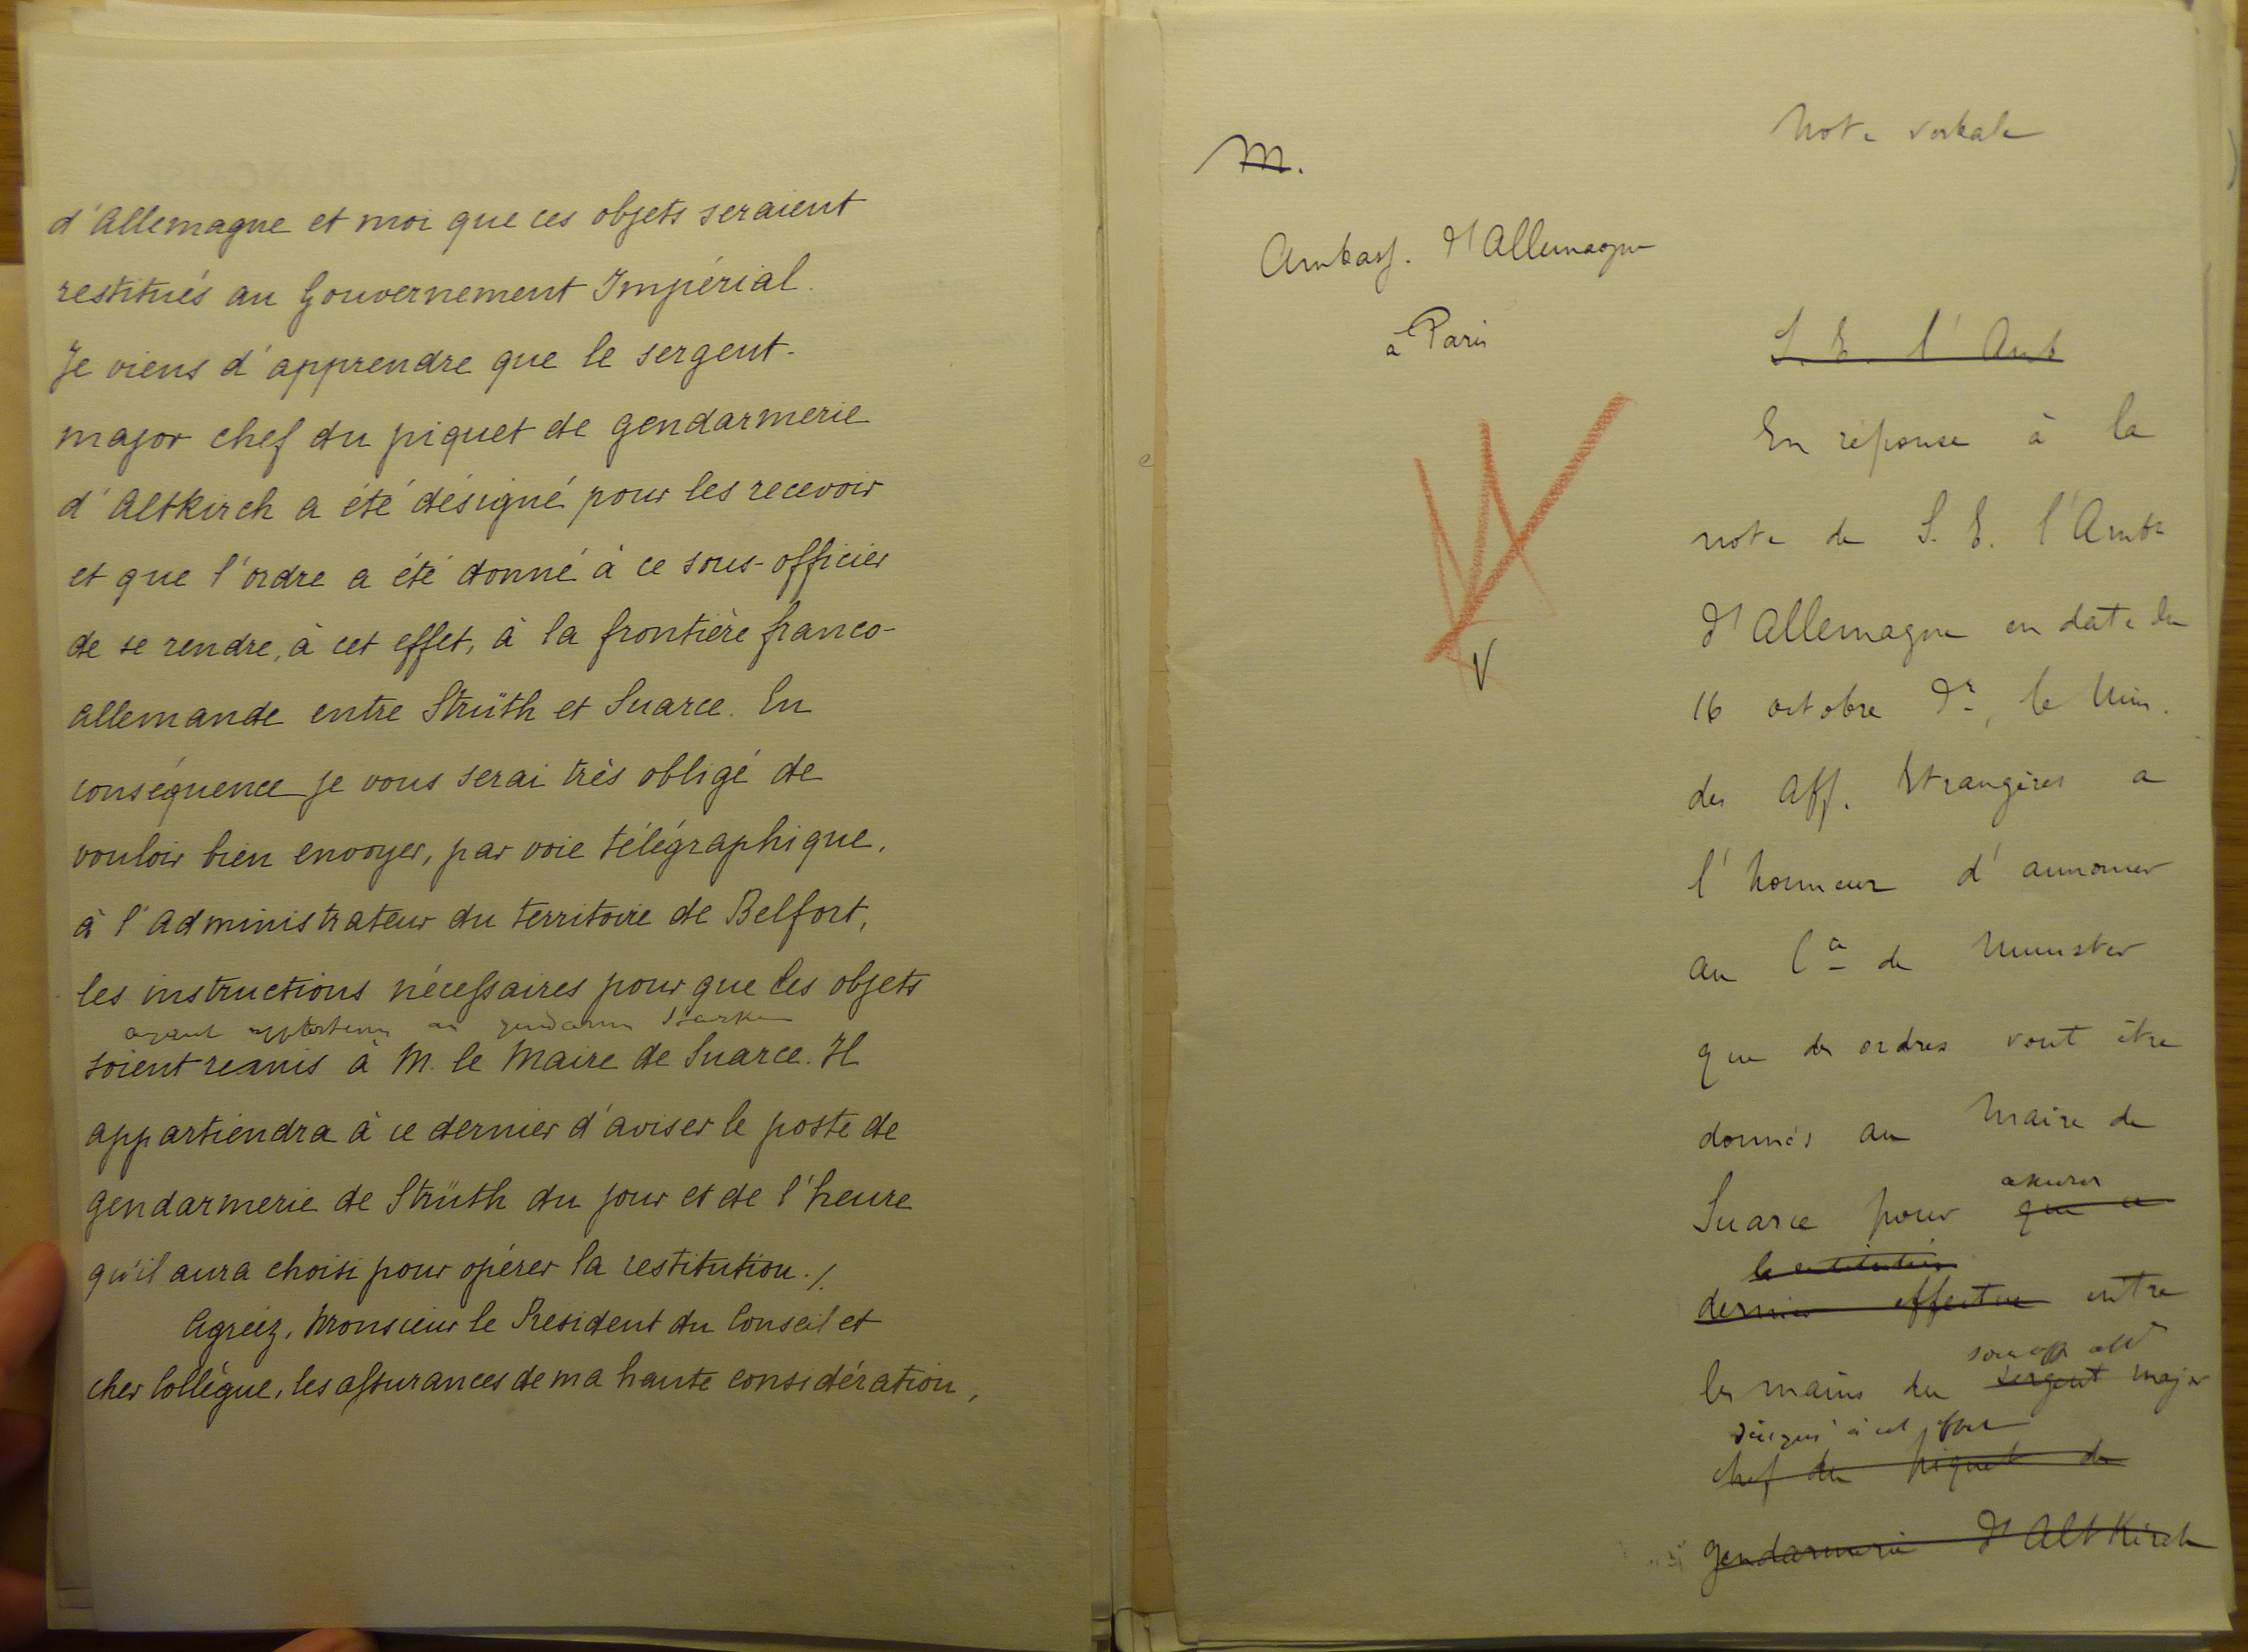 d'Allemagne et moi que ces objets seraient
restitués au Gouvernement Impérial.
Je viens d'apprendre que le sergent-
major chef du piquet de gendarmerie
d'Altkirch a été désigné pour les recevoir
et que l'ordre a été donné à ce sous-officier
de se rendre, à cet effet, à la frontière franco-
allemande entre Strüth et Suarce. En
conséquence je vous serai très obligé de
vouloir bien envoyer, par voie télégraphique,
à l'Administrateur du territoire de Belfort,
les instructions nécessaires pour que les objets
ayant appartenu au gendarme
soient remis à M. le Maire de Suarce. Il
appartiendra à ce dernier d'aviser le poste de
gendarmerie de Strüth du jour et de l'heure
qu'il aura choisi pour opérer la restitution./.
Agréez, Monsieur le Président du Conseil et
cher Collègue, les assurances de ma haute considération,
Note verbale
M.
Ambass. d'Allemagne
à Paris
S. E. l'Amb
En réponse à la
note de S. E. l'Ambr
d'Allemagne en date du
16 octobre dr, le Min.
des Aff. Etrangères a
l'honneur d'annoncer
au Cte de Munster
que des ordres vont être
donnés au Maire de
assurer
Suarce pour que ce
la restitution
dernier effectue entre
les mains du sergent major
désigné à cet effet
chef du piquet de
gendarmerie d'Altkirch